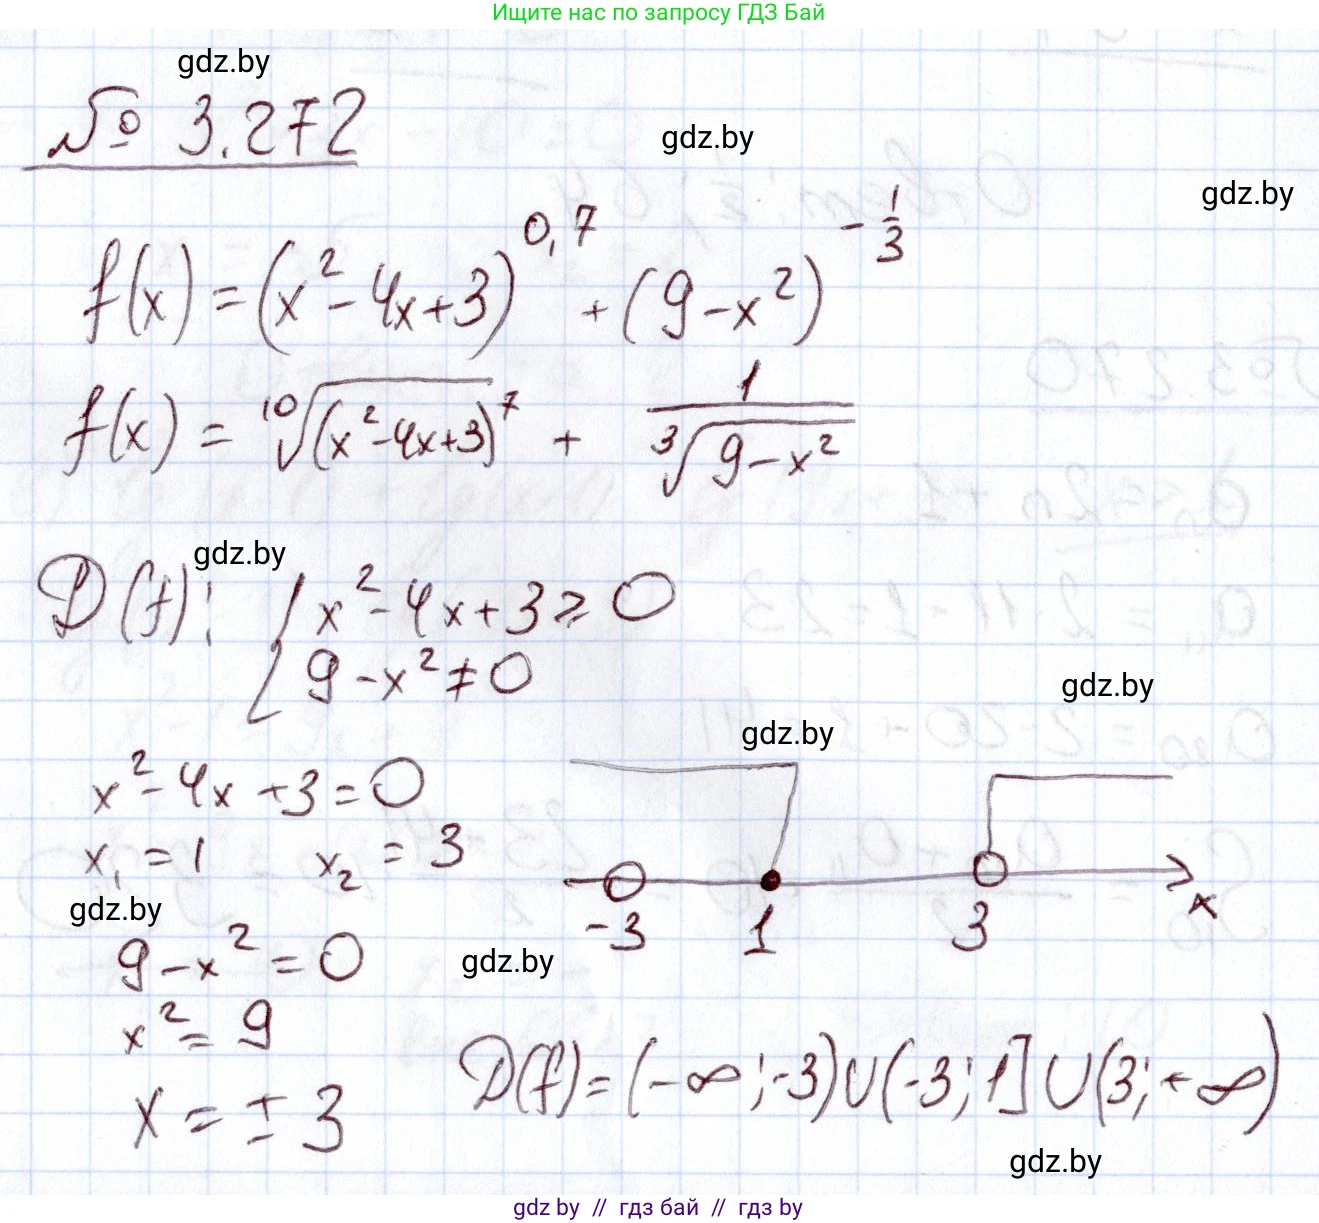 Ищите нас по запросу ГДЗ Бай
gdz.by
№ 3.272
gdz.by
gdz.by
f(x) = (x² - 4x + 3)^0,7 + (9 - x²)^-1/3
f(x) = ¹⁰√(x² - 4x + 3)⁷ + 1/³√9 - x²
gdz.by
D(f): { x² - 4x + 3 ≥ 0
9 - x² ≠ 0
gdz.by
gdz.by
x² - 4x + 3 = 0
x₁ = 1 x₂ = 3
x
gdz.by
-3 1 3
9 - x² = 0
gdz.by
x² = 9
D(f) = (-∞; -3) ∪ (-3; 1] ∪ (3; +∞)
x = ± 3
gdz.by
gdz by // гдз бай // гдз by